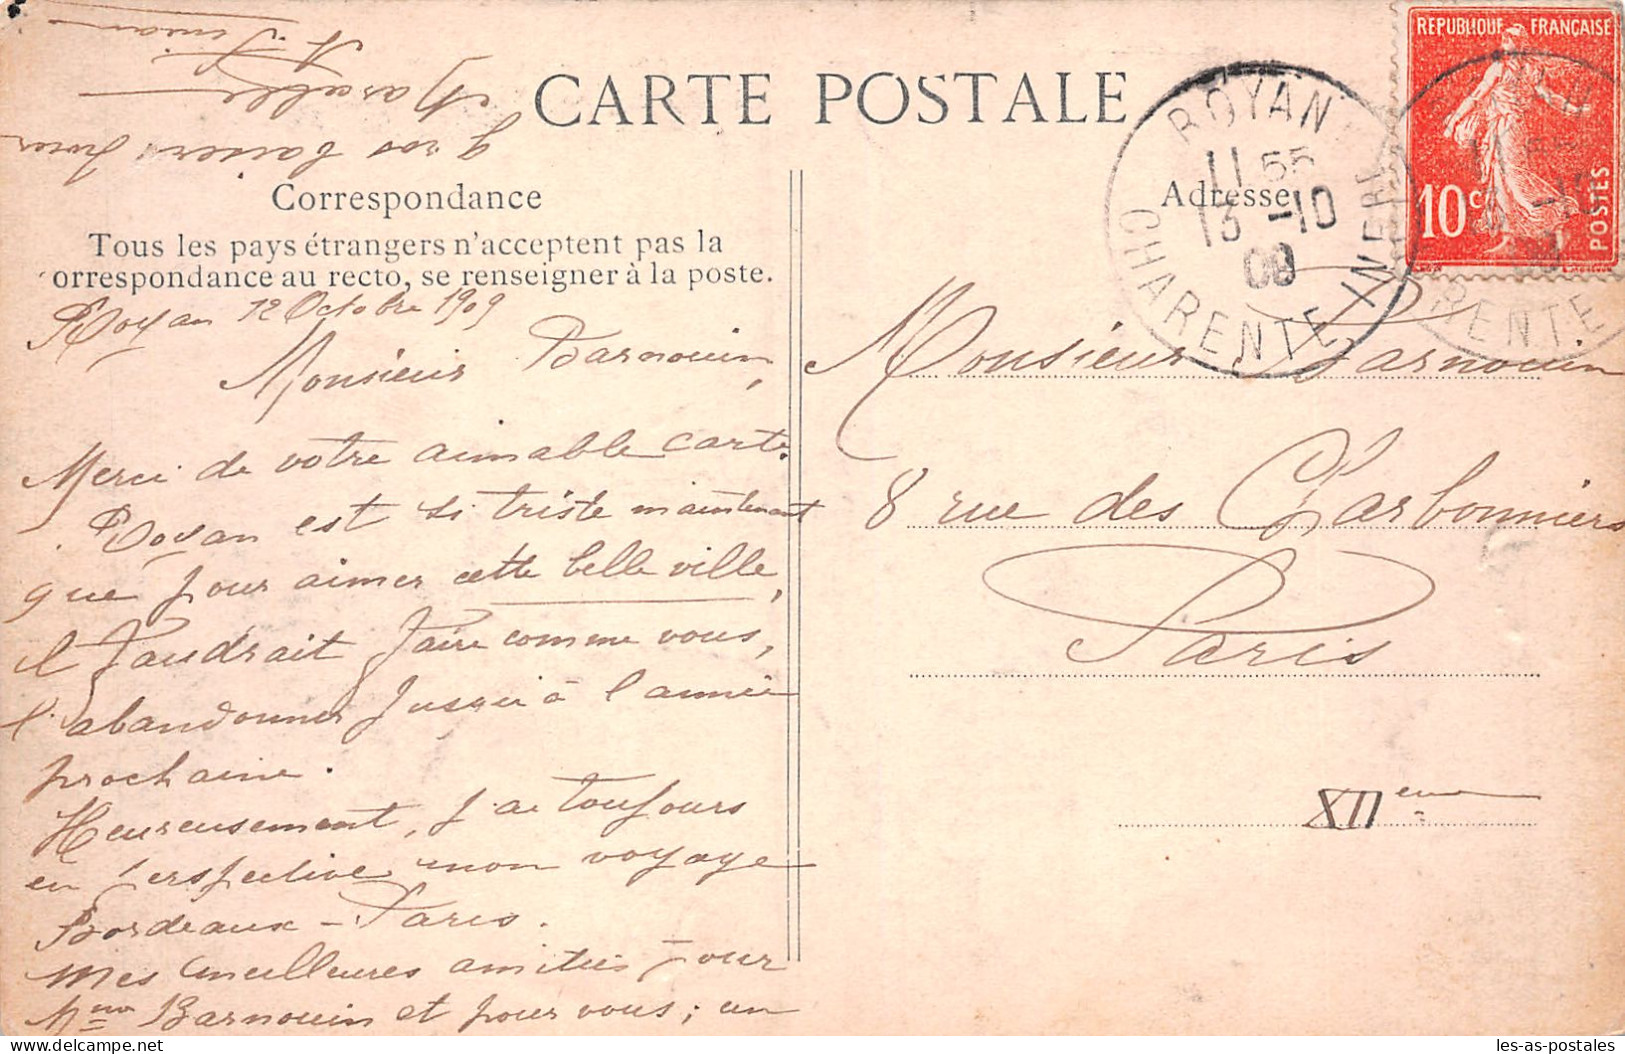 CARTE POSTALE
Correspondance
Tous les pays étrangers n'acceptent pas la
orrespondance au recto, se renseigner à la poste.
Royan 12 Octobre 1909
Monsieur Barnouin,
Merci de votre aimable carte.
Royan est si triste maintenant
que pour aimer cette belle ville,
il faudrait faire comme vous,
l'abandonner jusqu'à l'année
prochaine.
Heureusement, j'ai toujours
en perspective mon voyage
Bordeaux - Paris.
Mes meilleures amitiés pour
Mme Barnouin et pour vous ; un
gros baiser pour
Marcelle
Adresse
Monsieur Barnouin
8 rue des Charbonniers
Paris
XIIeme
ROYAN
11 55
13 -10
09
CHARENTE INFRE
REPUBLIQUE FRANÇAISE
10c
POSTES
RENTE
delcampe.net
les-as-postales